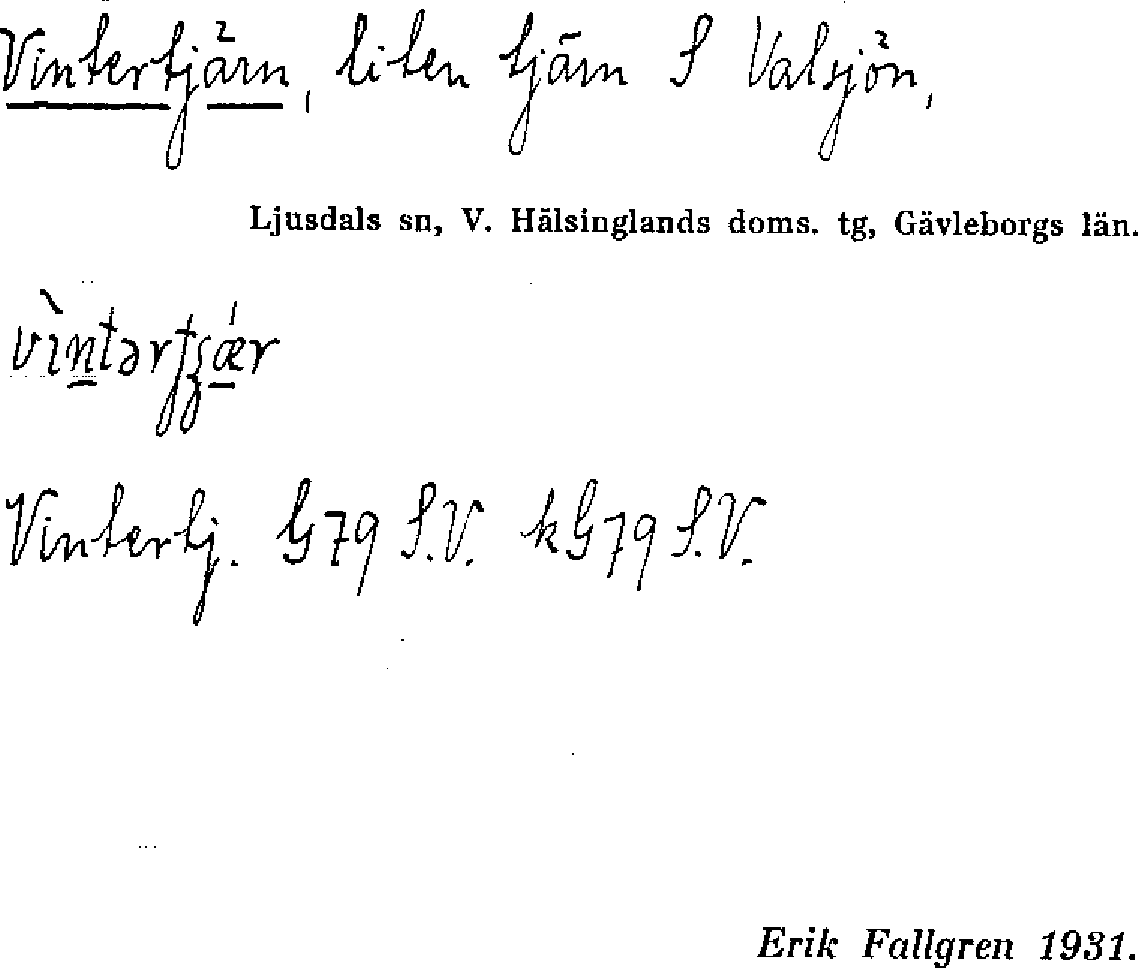 Vintertjärn, liten tjärn S Valsjön,
Ljusdals sn, V. Hälsinglands doms. tg, Gävleborgs län.
Vintertj. G79 S.V. kG79 S.V.
Erik Fallgren 1931.